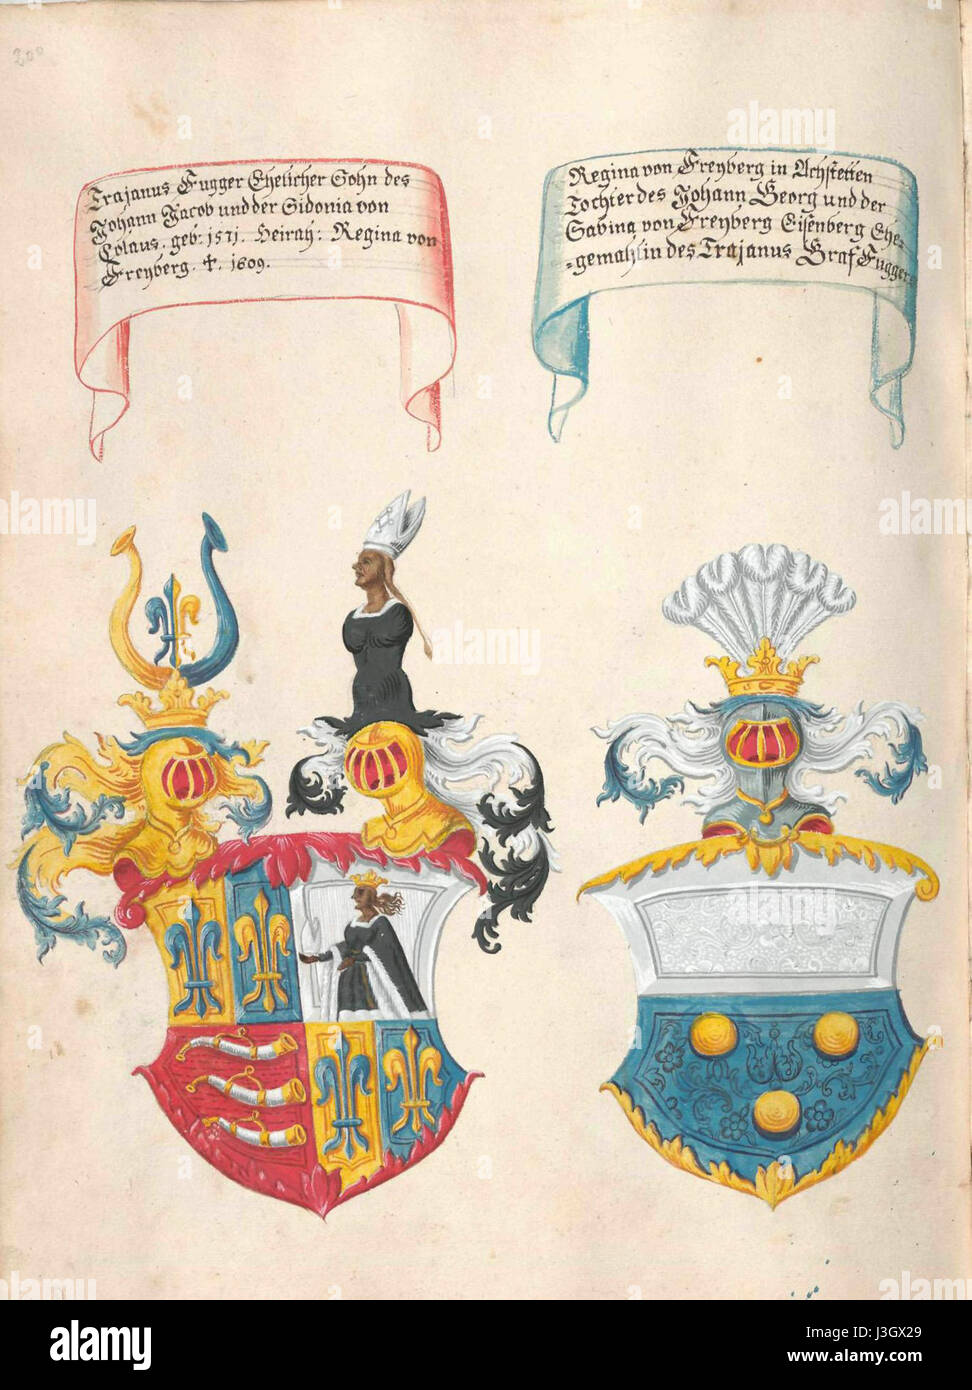 200
Trajanus Fugger Ehelicher Sohn des
Johann Jacob und der Sidonia von
Colaus. geb: 1571. Heirath: Regina von
Freyberg. †. 1609.
Regina von Freyberg in Achstetten
Tochter des Johann Georg und der
Sabina von Freyberg Eisenberg Ehe-
=gemahlin des Trajanus Graf Fugger.
alamy
Image ID: J3GX29
www.alamy.com